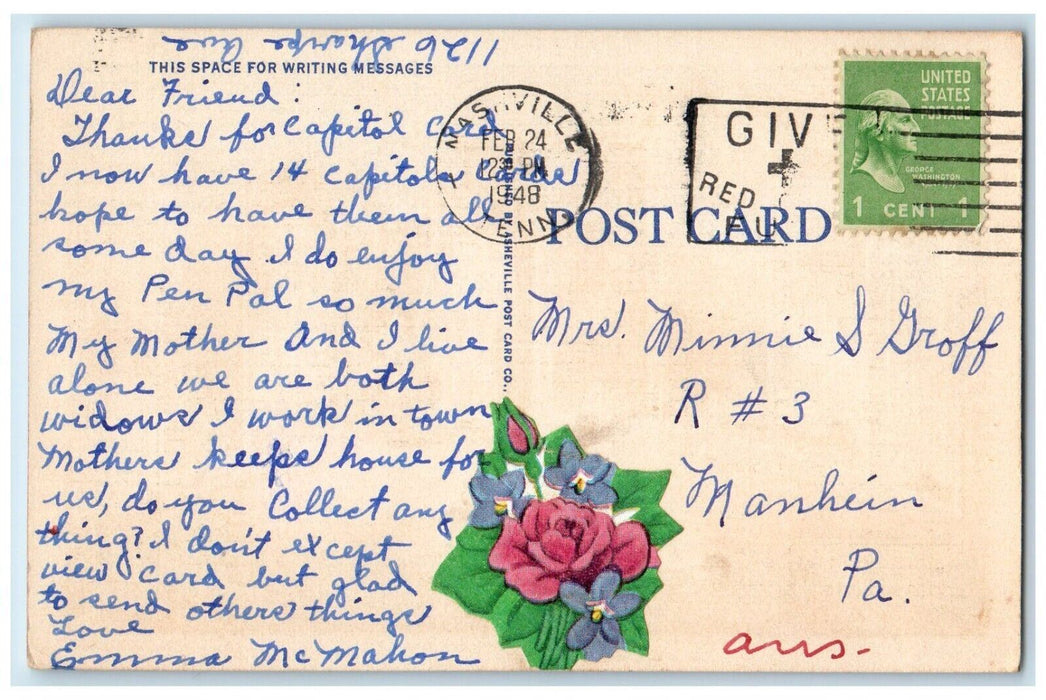 1126 Sharpe Ave
THIS SPACE FOR WRITING MESSAGES
Dear Friend:
Thanks for Capitol Card
I now have 14 Capitols Cards
hope to have them all
some day. I do enjoy
my Pen Pal so much
My Mother And I live
alone we are both
widows I work in town
Mothers keeps house for
us, do you Collect any
thing? I don't except
view card but glad
to send others things
Love
Emma McMahon
NASHVILLE
FEB 24
1948
TENN.
BY ASHEVILLE POST CARD CO.,
GIVE
RED
FU
UNITED
STATES
POSTAGE
GEORGE
WASHINGTON
1 CENT 1
POST CARD
Mrs. Minnie S Groff
R # 3
Manhein
Pa.
ans-